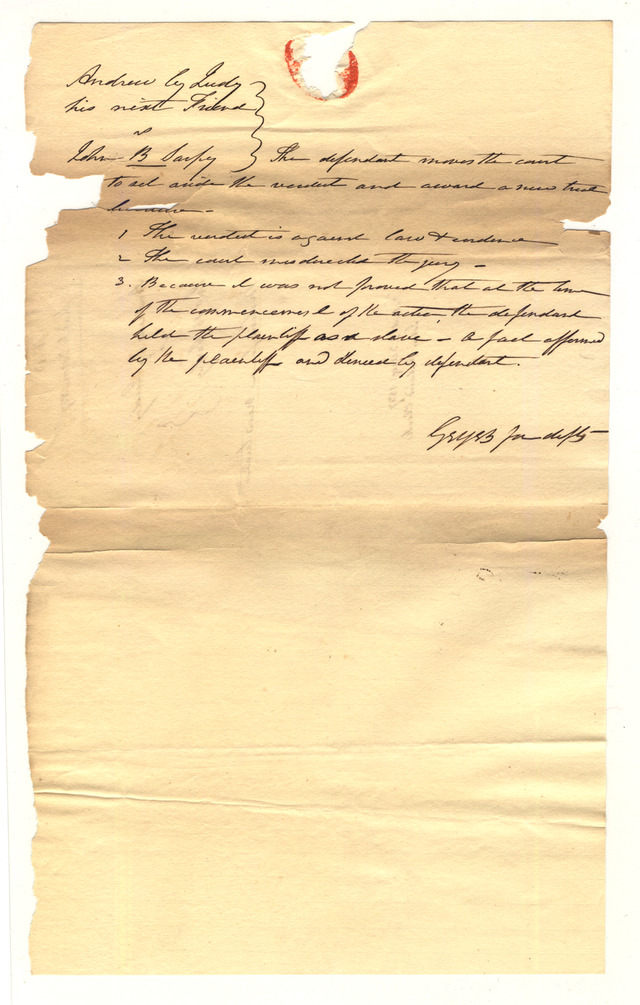 Andrew by Judy
his next Friend
vs
John B Sarpy } The defendant moves the court
to set aside the verdict and award a new trial
because -
1 The verdict is against law & evidence
2 The court misdirected the jury -
3. Because it was not proved that at the time
of the commencement of the action the defendant
held the plaintiff as a slave - a fact affirmed
by the plaintiff and denied by defendant.
for defts